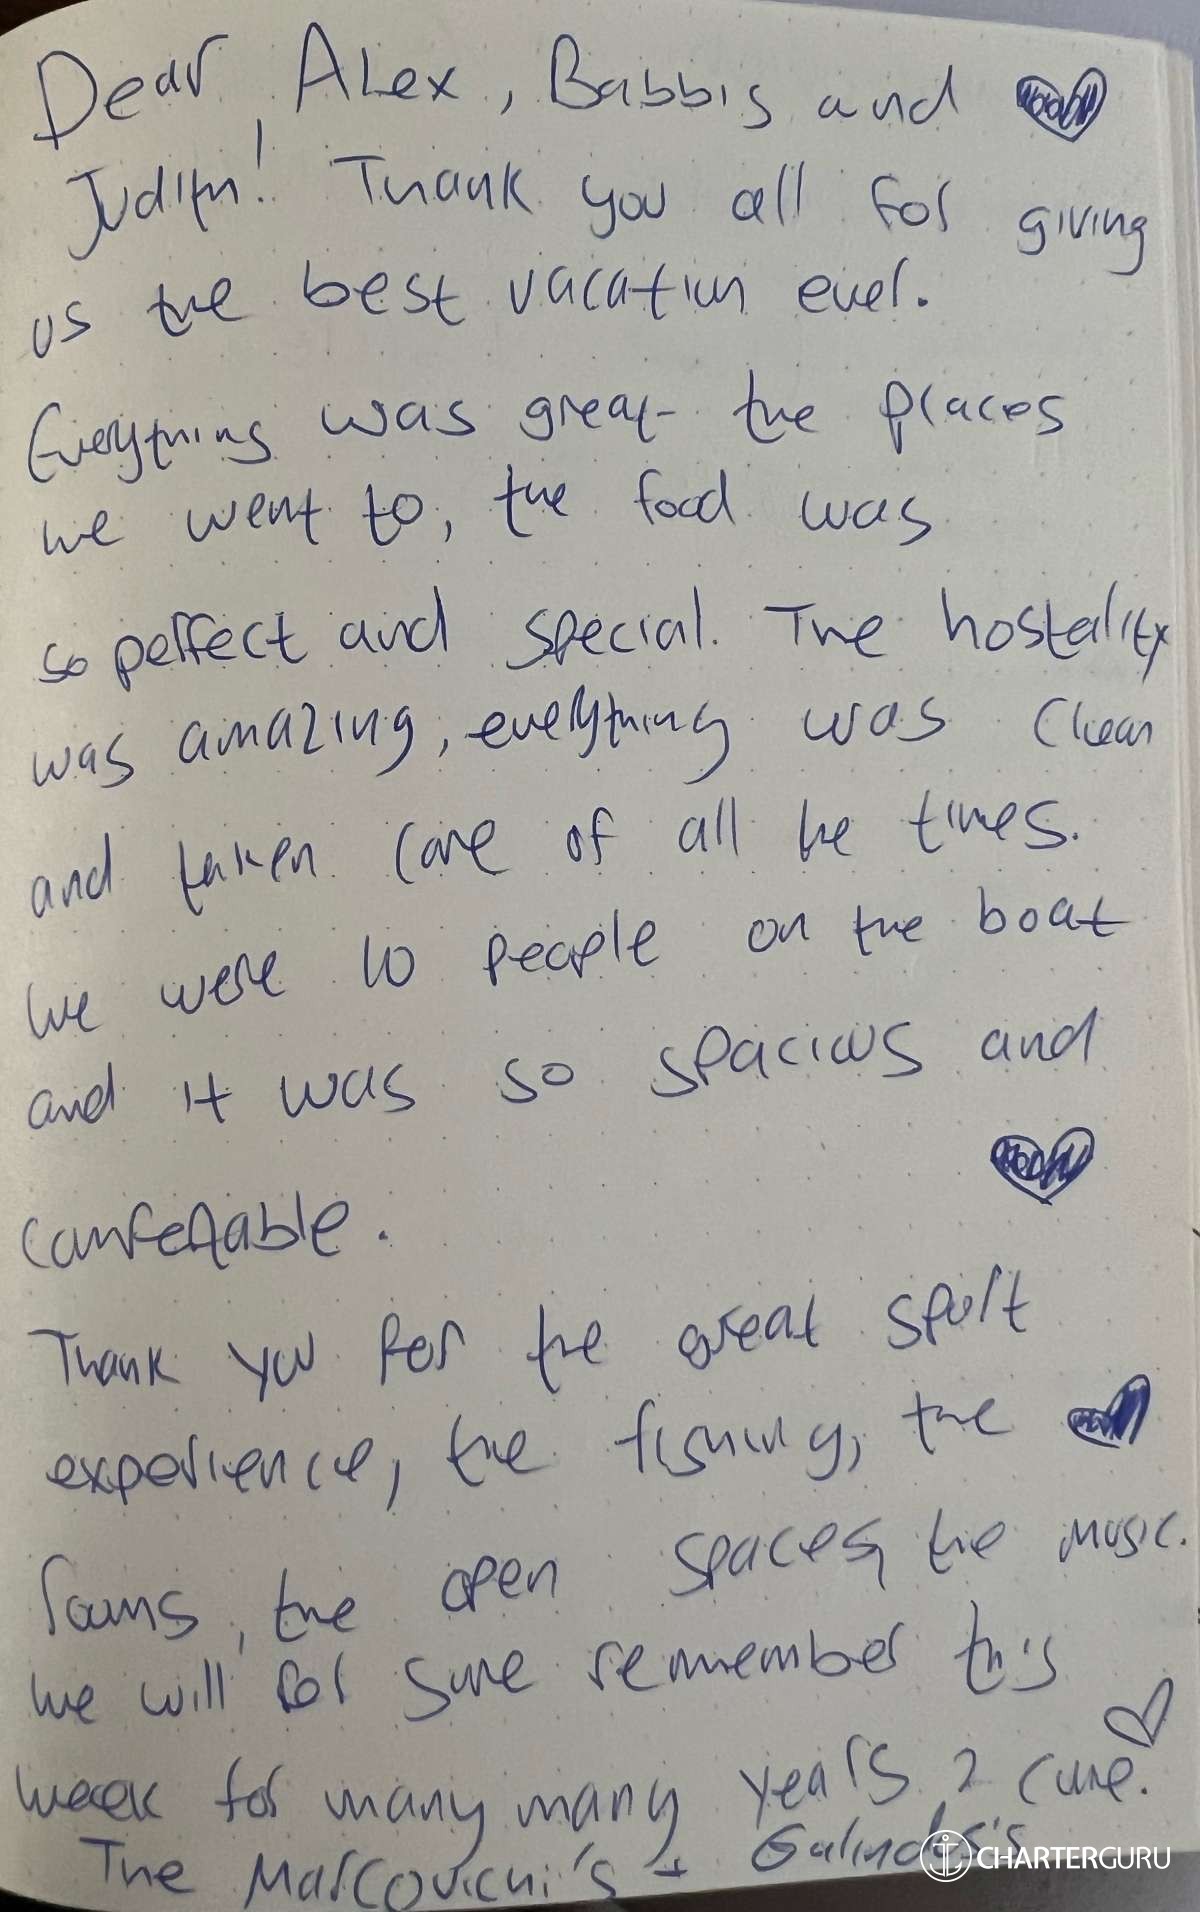 Dear Alex, Babbis and
Judith! Thank you all for giving
us the best vacation ever.
Everything was great - the places
we went to, the food was
so perfect and special. The hostality
was amazing, everything was clean
and taken care of all he times.
We were 10 people on the boat
and it was so spacious and
comfertable.
Thank you for the great sport
experience, the fishing, the
rooms, the open spaces, the music.
We will for sure remember this
week for many many years 2 come.
The Marcovichi's + Galindos's
CHARTERGURU